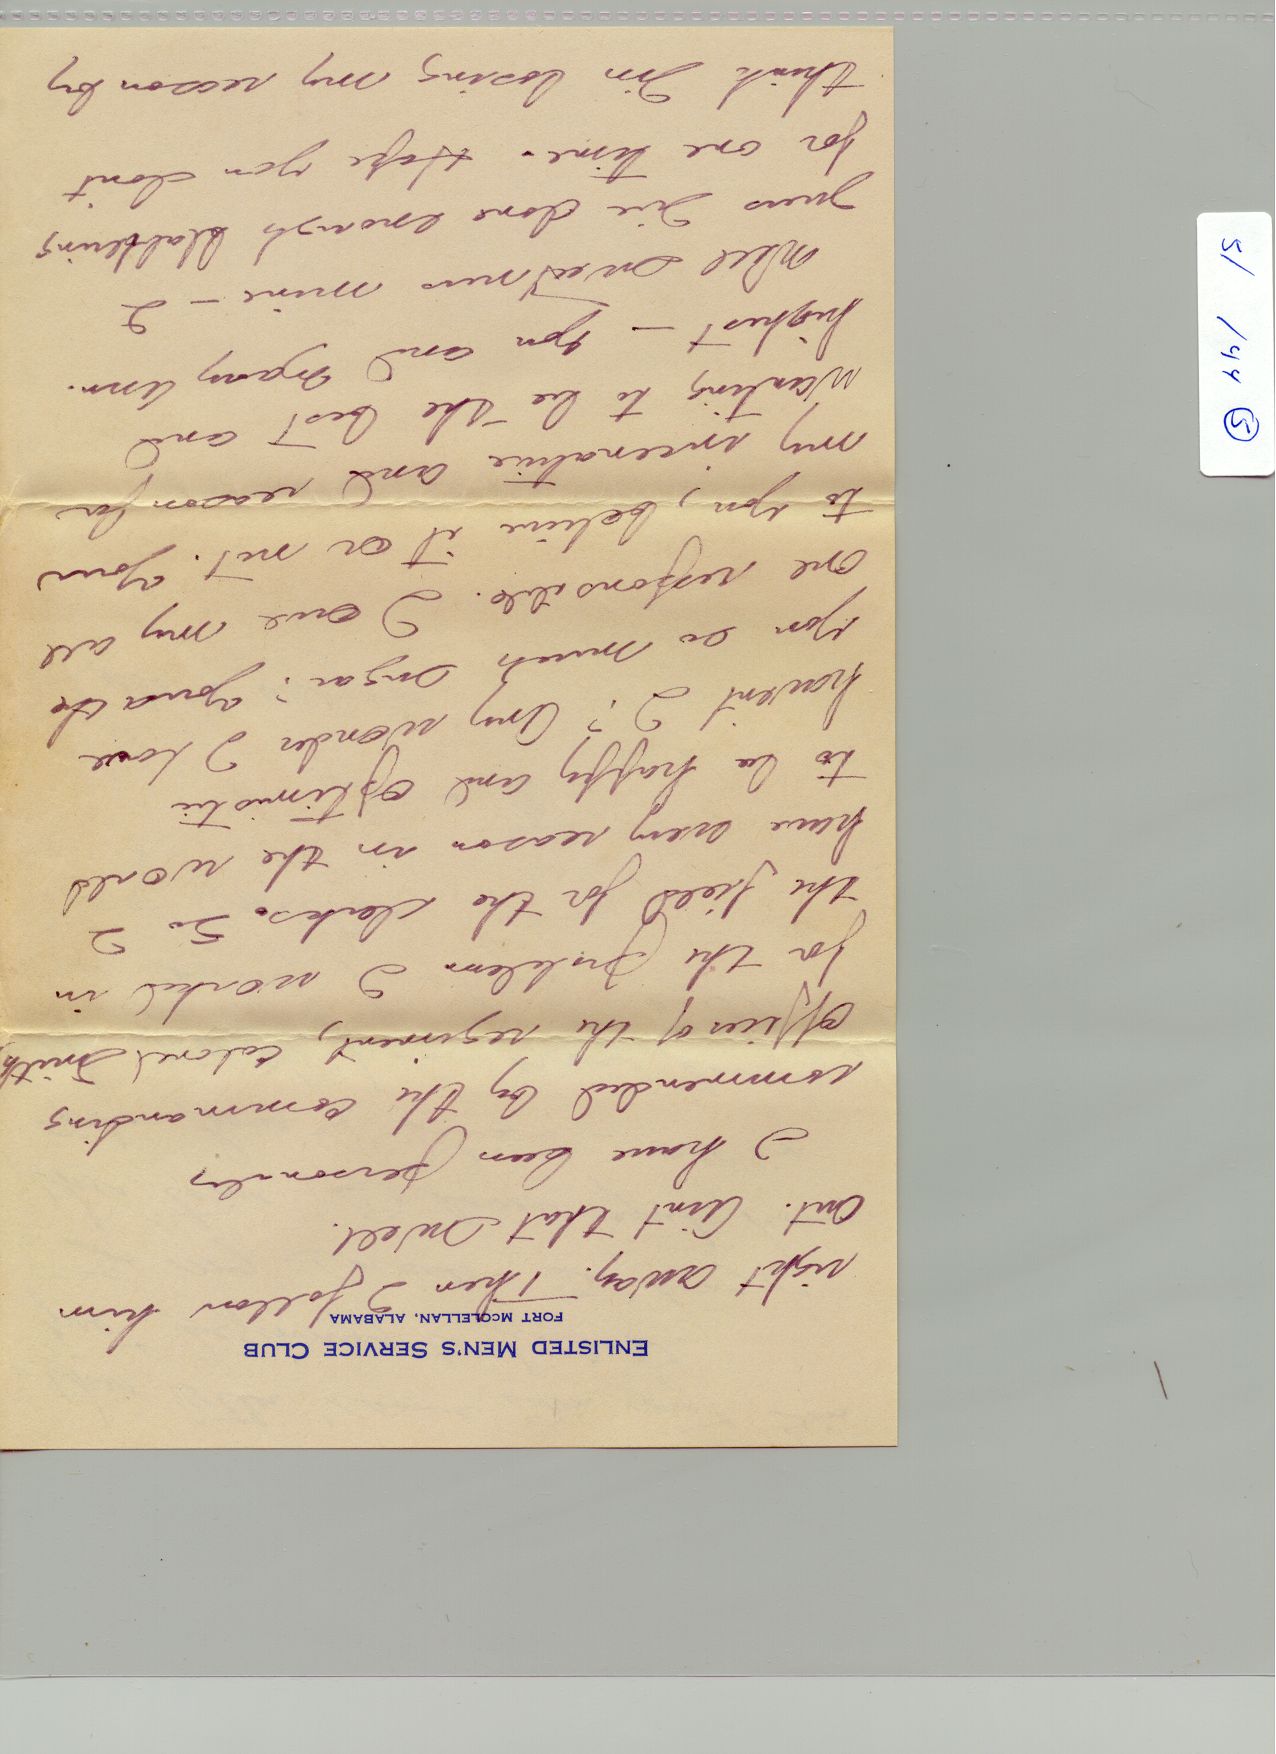 ENLISTED MEN'S SERVICE CLUB
FORT MCCLELLAN, ALABAMA
right away. Then I follow him
out. Ain't that swell.
I have been personaly
commended by the commanding
officer of the regiment, Colonel Smith,
for the problem I worked in
the field for the clerks. So I
have every reason in the world
to be happy and optimistic
havent I? Any wonder I love
you so much Sugar? Your the
one responsible. I owe my all
to you, believe it or not. Your
my incenative and reason for
wanting to be the best and
highest — you and Ann.
Well sweetness mine — I
guess I've done enough blabbering
for one time. Hope you don't
think I'm losing my reason by
51 144 5